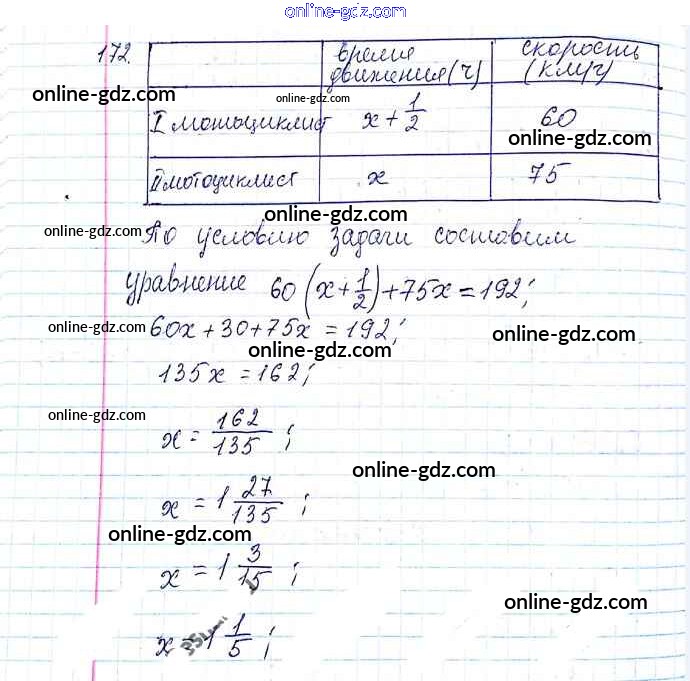 online-gdz.com
172.
время движения(ч)
скорость (км/ч)
online-gdz.com
online-gdz.com
I мотоциклист x + 1/2 60
online-gdz.com
II мотоциклист x 75
online-gdz.com
online-gdz.com
По условию задачи составим
уравнение 60(x + 1/2) + 75x = 192;
60x + 30 + 75x = 192;
online-gdz.com
online-gdz.com
online-gdz.com
135x = 162;
online-gdz.com
x = 162/135;
online-gdz.com
x = 1 27/135;
online-gdz.com
x = 1 3/15;
online-gdz.com
x = 1 1/5;